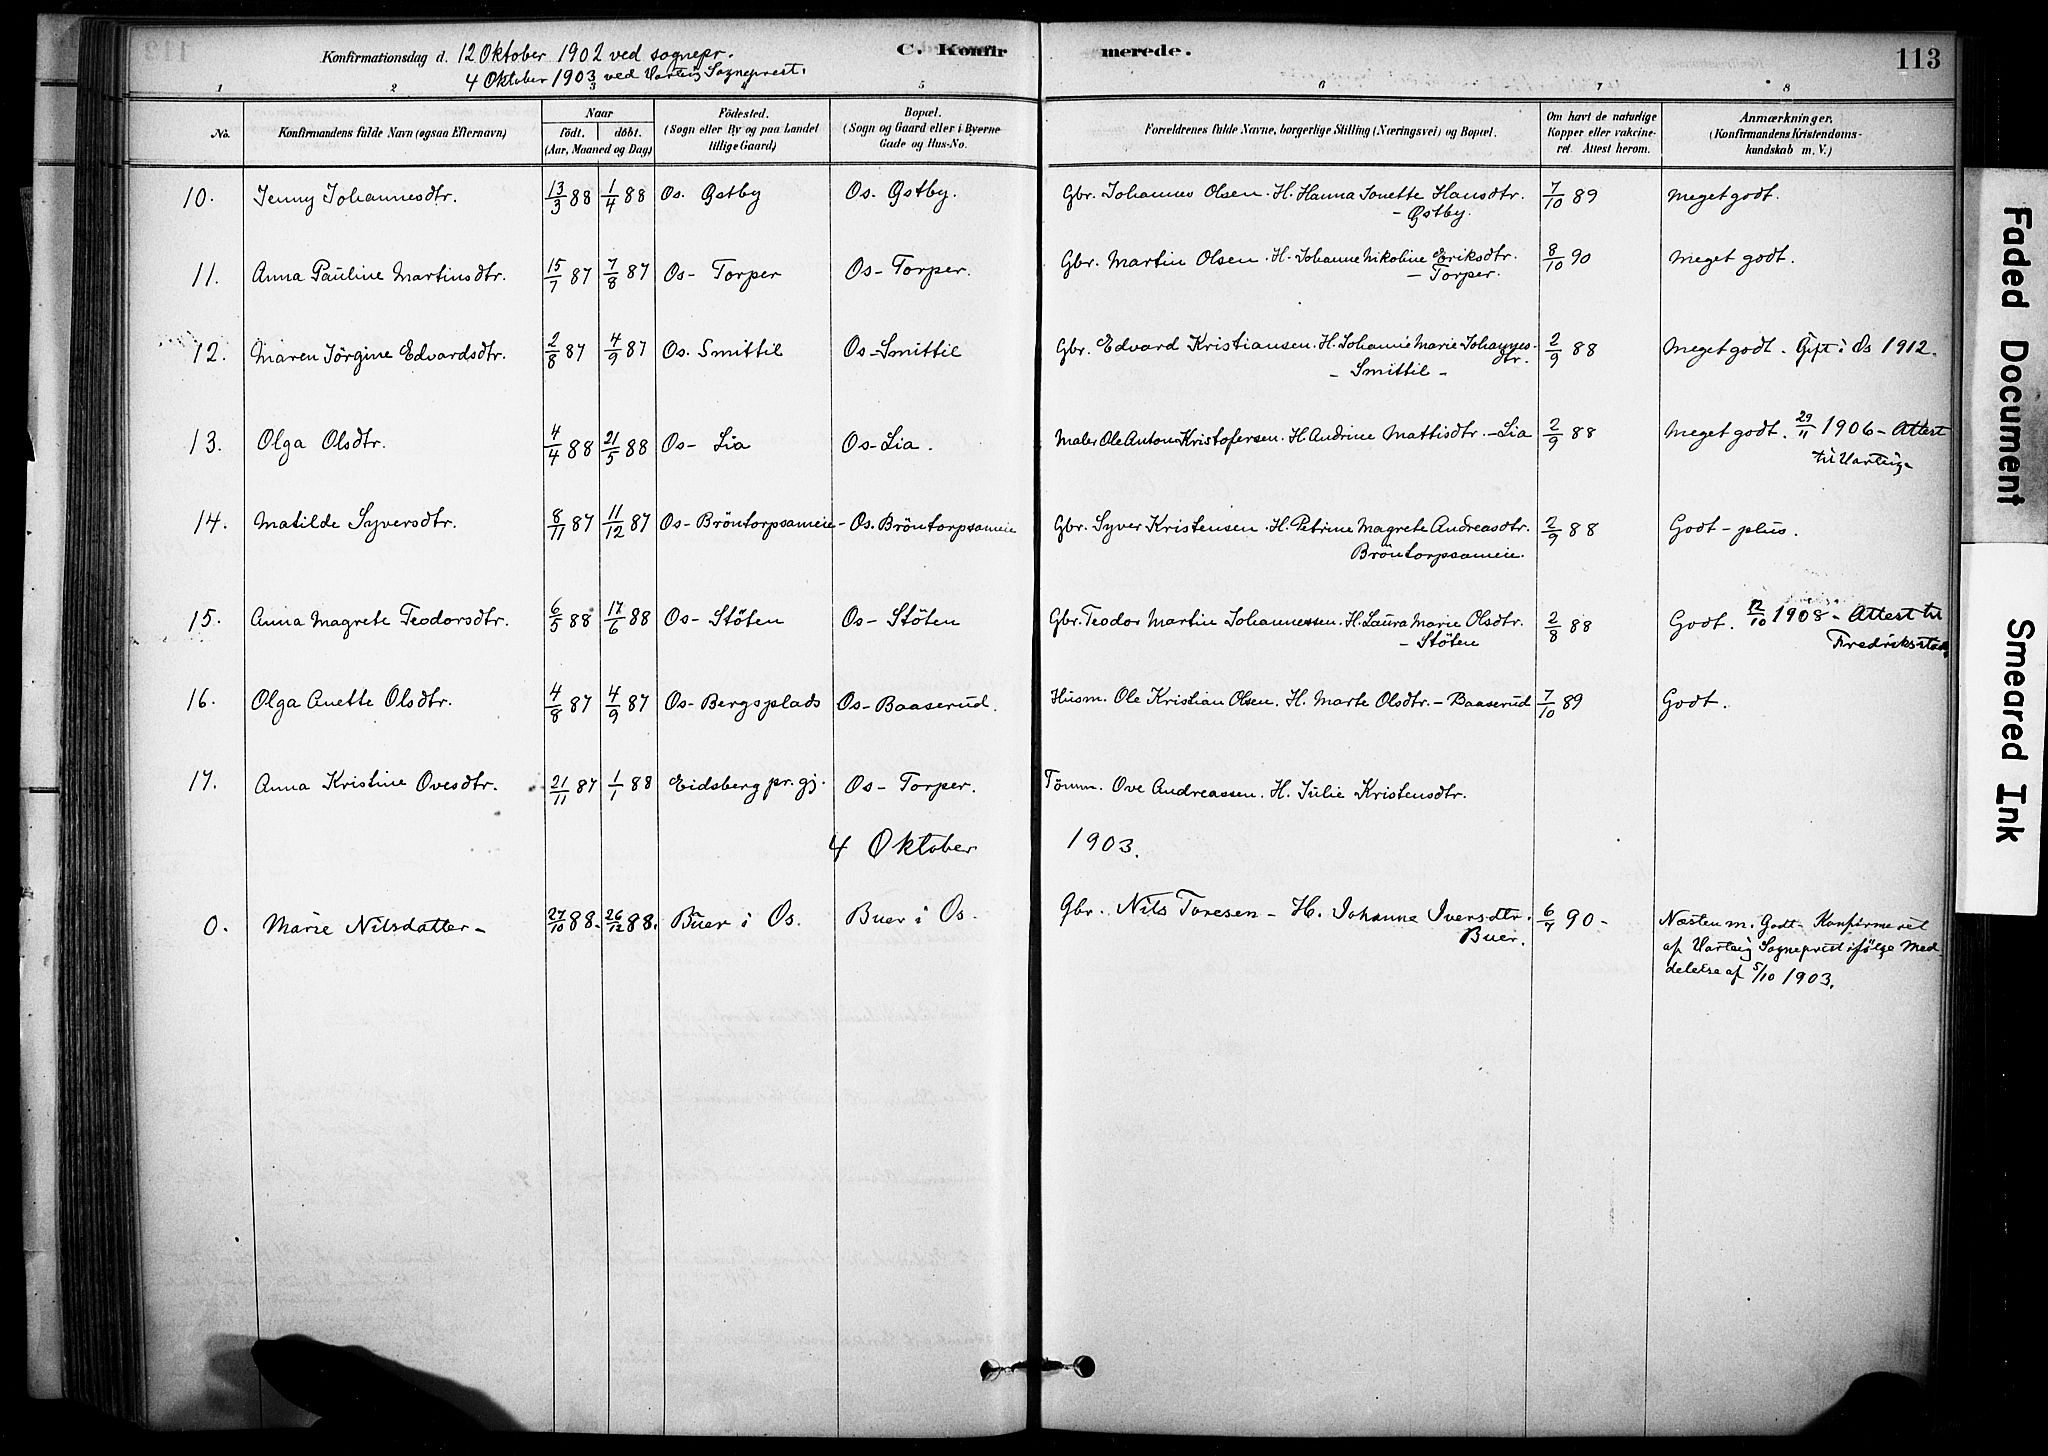 Konfirmationsdag d. 12 Oktober 1902 ved sognepr.
4 Oktober 1903 ved Varteig Sogneprest.
C. Konfirmerede.
113
1 2 3 4 5 6 7 8
No.
Konfirmandens fulde Navn (ogsaa Efternavn)
Naar
födt. döbt.
(Aar, Maaned og Dag)
Födested.
(Sogn eller By og paa Landet
tillige Gaard)
Bopæl.
(Sogn og Gaard eller i Byerne
Gade og Hus-No.
Forældrenes fulde Navne, borgerlige Stilling (Næringsvei) og Bopæl.
Om havt de naturlige
Kopper eller vakcine-
ret. Attest herom.
Anmærkninger,
(Konfirmandens Kristendoms-
kundskab m. V.)
10. Jenny Johannesdtr. 13/3 88 1/4 88 Os. Östby Os. Östby. Gbr. Johannes Olsen. H. Hanna Jonette Hansdtr. 7/10 89 Meget godt.
- Östby.
11. Anna Pauline Martinsdtr. 15/7 87 7/8 87 Os- Torper Os- Torper. Gbr. Martin Olsen. H. Johanne Nikoline Eriksdtr. 8/10 90 Meget godt.
- Torper.
12. Maren Jörgine Edvardsdtr. 2/8 87 4/9 87 Os. Smittil Os-Smittil Gbr. Edvard Kristiansen. H. Johanne Marie Johannes- 2/9 88 Meget godt. Gift i Os 1912.
dtr.
- Smittil -
13. Olga Olsdtr. 4/4 88 21/5 88 Os- Lia Os-Lia. Maler Ole Anton Kristofersen. H Andrine Mattisdtr. - Lia 2/9 88 Meget godt. 29/11 1906 - Attest
til Varteig-
14. Matilde Syversdtr. 8/11 87 11/12 87 Os- Bröntorpsameie - Os. Bröntorpsameie Gbr. Syver Kristensen. H. Petrine Magrete Andreasdtr. 2/9 88 Godt - plus.
Bröntorpsameie.
15. Anna Magrete Teodorsdtr. 6/5 88 17/6 88 Os- Stöten Os- Stöten Gbr. Teodor Martin Johannessen. H. Laura Marie Olsdtr. 2/8 88 Godt. 12/10 1908 - Attest til
- Stöten Fredriksstad
16. Olga Anette Olsdtr. 4/8 87 4/9 87 Os- Bergsplads Os- Baaserud. Husm. Ole Kristian Olsen. H. Marte Olsdtr. - Baaserud 7/10 89 Godt.
17. Anna Kristine Ovesdtr. 21/11 87 1/1 88 Eidsberg pr.gj. Os- Torper. Tömm. Ove Andreassen. H. Julie Kristensdtr.
4 Oktober 1903.
0. Marie Nilsdatter - 27/10 88. 26/12 88. Buer i Os. Buer i Os. Gbr. Nils Toresen - H. Johanne Iversdtr. 6/7 90 - Næsten m. Godt - Konfirmeret
Buer. af Varteig Sogneprest ifölge Med-
delelse af 5/10 1903.
Faded Document
Smeared Ink